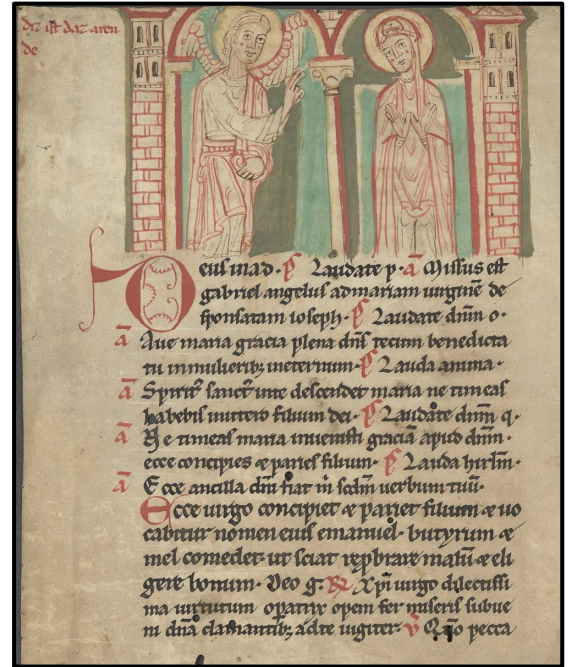 diz ist daz aven
de
Deus in ad· P Laudate p· a Missus est
gabriel angelus ad mariam uirginē de
sponsatam ioseph· P Laudate dnm o·
a Aue maria gracia plena dns tecum benedicta
tu in mulierib; in eternum· P Lauda anima·
a Spirit᷒ sanct᷒ in te descendet maria ne timeas
habebis in utero filium dei· P Laudate dnm q·
a Ne timeas maria inuenisti graciā apud dnm·
ecce concipies & paries filium· P Lauda hirlm·
a Ecce ancilla dni fiat m̄ scdm uerbum tuū·
Ecce uirgo concipiet & pariet filium & uo
cabitur nomen eius emanuel· butyrum &
mel comedet· ut sciat reprobare malū & eli
gere bonum· Deo g· R Xpi uirgo dilectissi
ma uirtutum operatrix opem fer miseris subue
ni dña clamantib; ad te iugiter· V Qm̄o pecca